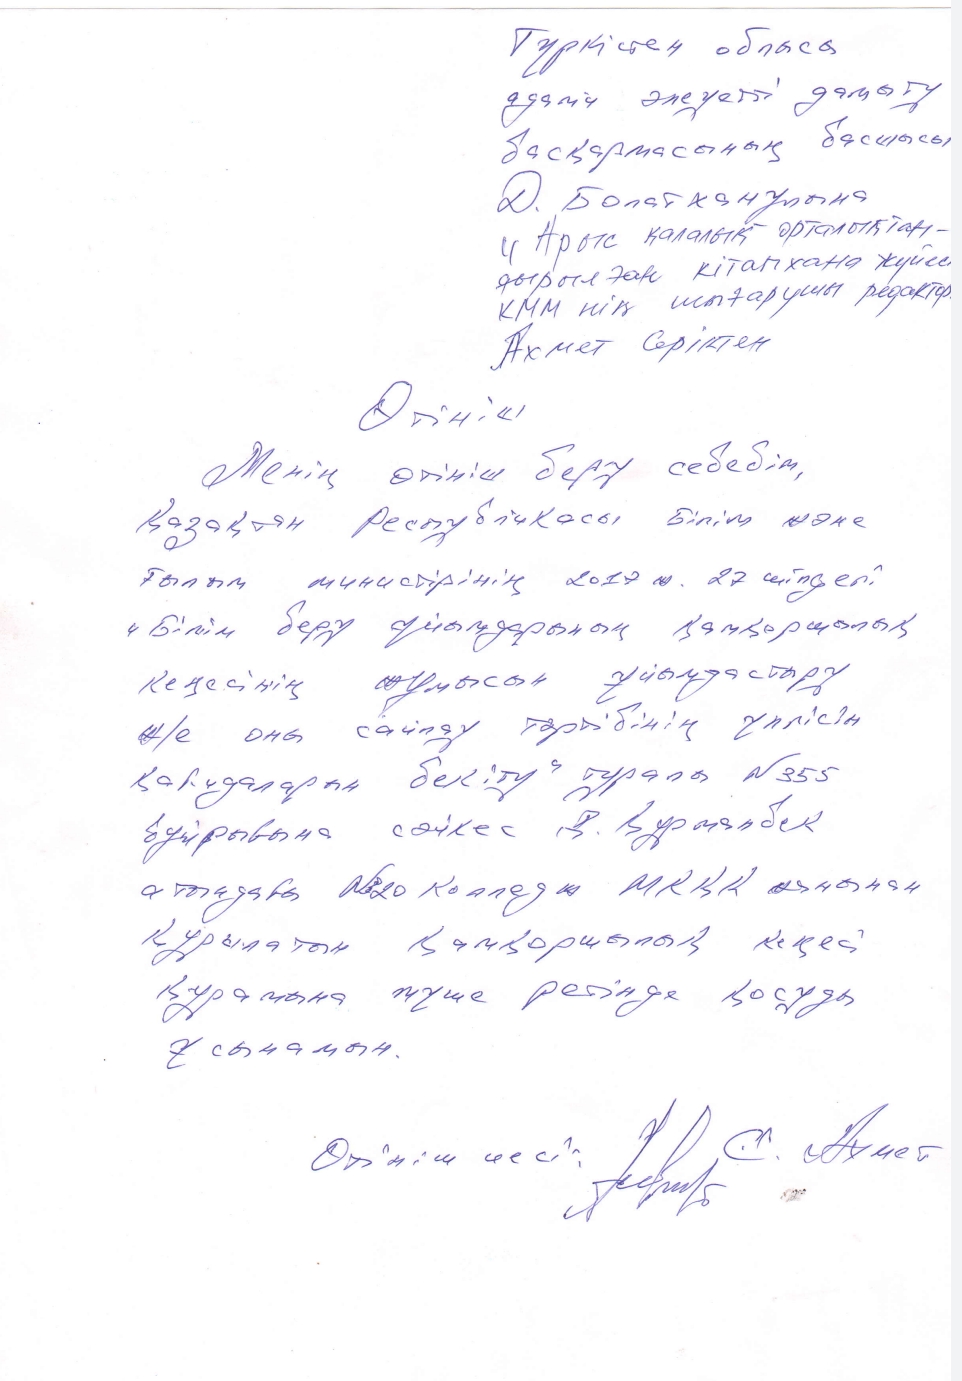 Түркістен облысы
адами әлеуетті дамыту
басқармасының басшысы
Д. Болатханұлына
"Арыс қалалық орталықтан-
дырылған кітапхана жүйесі
КММ нің шығарушы редактор
Ахмет Серіктен
Өтініш
Менің өтініш беру себебім,
Қазақтан Республикасы Білім және
Ғылым министірінің 2017 ж. 27 шілдегі
"Білім беру ұйымдарының қамқоршылық
кеңесінің жұмысын ұйымдастыру
ж/е оны сайлау тәртібінің үлгісін
қағидаларын бекіту" туралы №355
бұйрығына сәйкес Д. Құрманбек
атындағы №20 Колледж МКҚК жанынан
құрылатын қамқоршылық кеңесі
құрамына мүше ретінде қосуды
ұсынамын.
Өтініш иесі: С. Ахмет